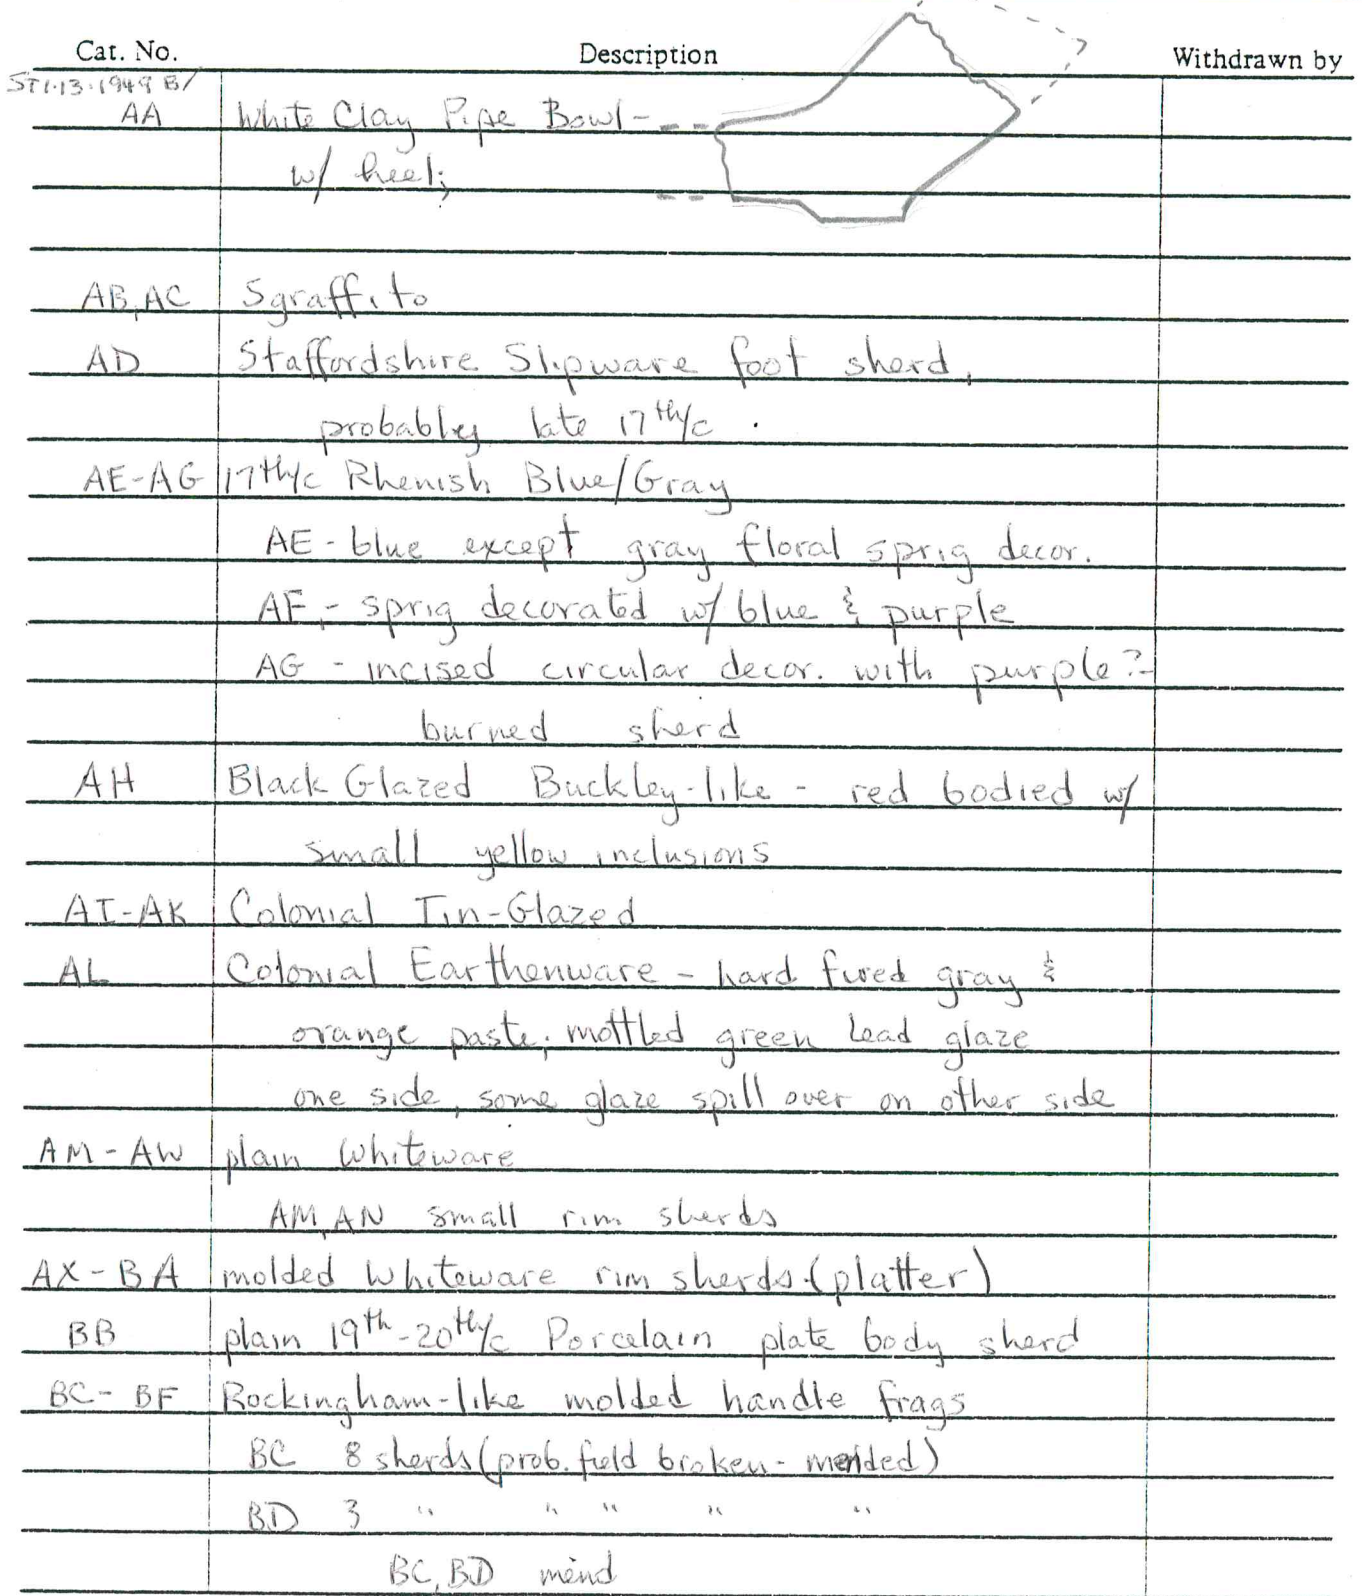 Cat. No. Description Withdrawn by
ST1·13·1949 B/
AA White Clay Pipe Bowl -
w/ heel;
AB, AC Sgraffito
AD Staffordshire Slipware foot sherd,
probably late 17th/c.
AE-AG 17th/c Rhenish Blue/Gray
AE - blue except gray floral sprig decor.
AF, - sprig decorated w/ blue & purple
AG - incised circular decor. with purple? -
burned sherd
AH Black Glazed Buckley-like - red bodied w/
small yellow inclusions
AI-AK Colonial Tin-Glazed
AL Colonial Earthenware - hard fired gray &
orange paste; mottled green lead glaze
one side, some glaze spill over on other side
AM-AW plain Whiteware
AM, AN small rim sherds
AX-BA molded Whiteware rim sherds (platter)
BB plain 19th-20th/c Porcelain plate body sherd
BC-BF Rockingham-like molded handle frags
BC 8 sherds (prob. field broken - mended)
BD 3 " " " " "
BC, BD mend